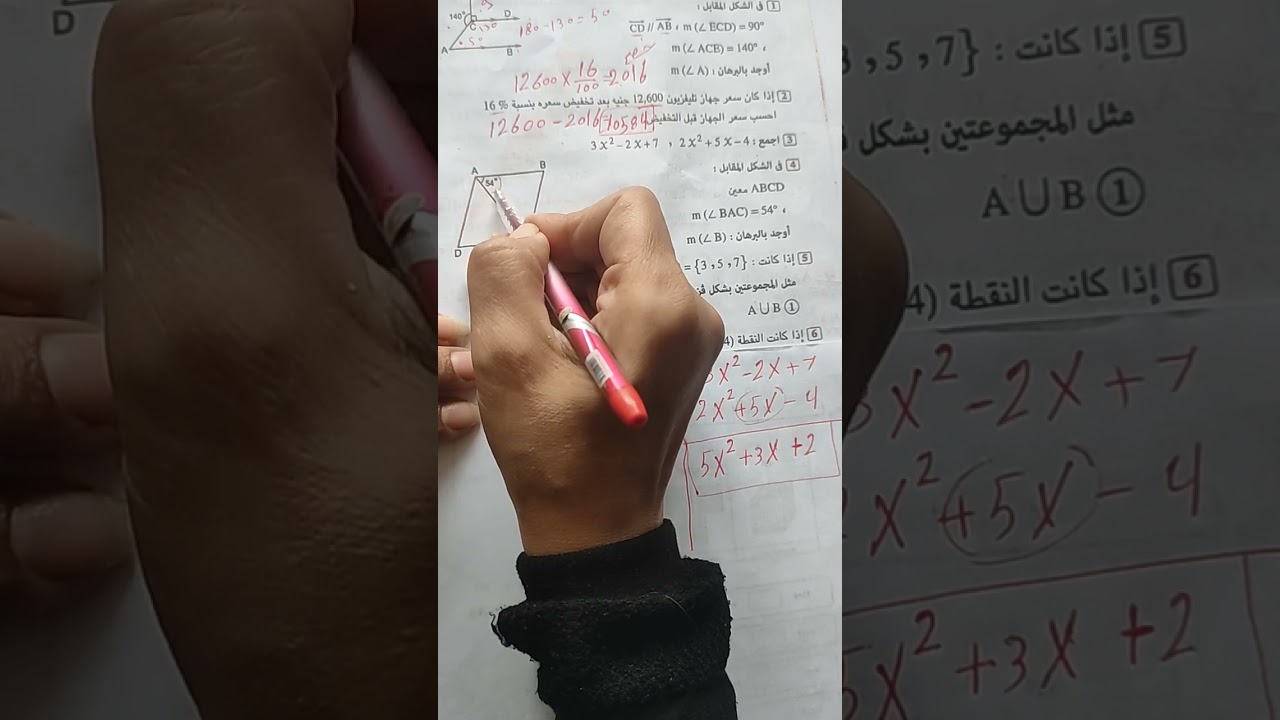 1 فى الشكل المقابل :
CD // AB ، m (∠ ECD) = 90°
، m (∠ ACE) = 140°
أوجد بالبرهان : m (∠ A)
140°
C
D
130
A
50
B
180-130=50
12600 × 16/100 = 2016
2 إذا كان سعر جهاز تليفزيون 12,600 جنيه بعد تخفيض سعره بنسبة 16 %
احسب سعر الجهاز قبل التخفيض
12600 - 2016 = 10584
3 اجمع : 3 x² – 2 x + 7 ، 2 x² + 5 x – 4
4 فى الشكل المقابل :
ABCD معين
، m (∠ BAC) = 54°
أوجد بالبرهان : m (∠ B)
A
B
54°
D
5 إذا كانت : = {3 , 5 , 7}
مثل المجموعتين بشكل
1 A ∪ B
6 إذا كانت النقطة
x² - 2x + 7
2x² + 5x - 4
5x² + 3x + 2
D
5 إذا كانت : 3 , 5 , 7}
مثل المجموعتين بشكل
A ∪ B 1
6 إذا كانت النقطة (4
x² - 2x + 7
x² + 5x - 4
5x² + 3x + 2